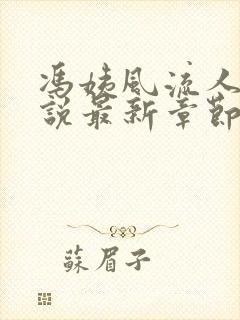 馮姨風流人
說最新章節
蘇眉子